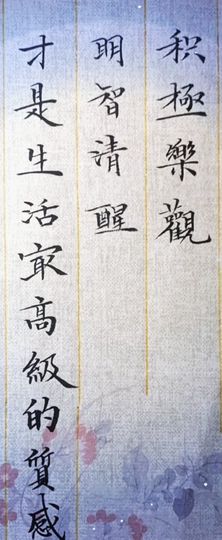 积極樂觀
明智清醒
才是生活㝡高級的質感